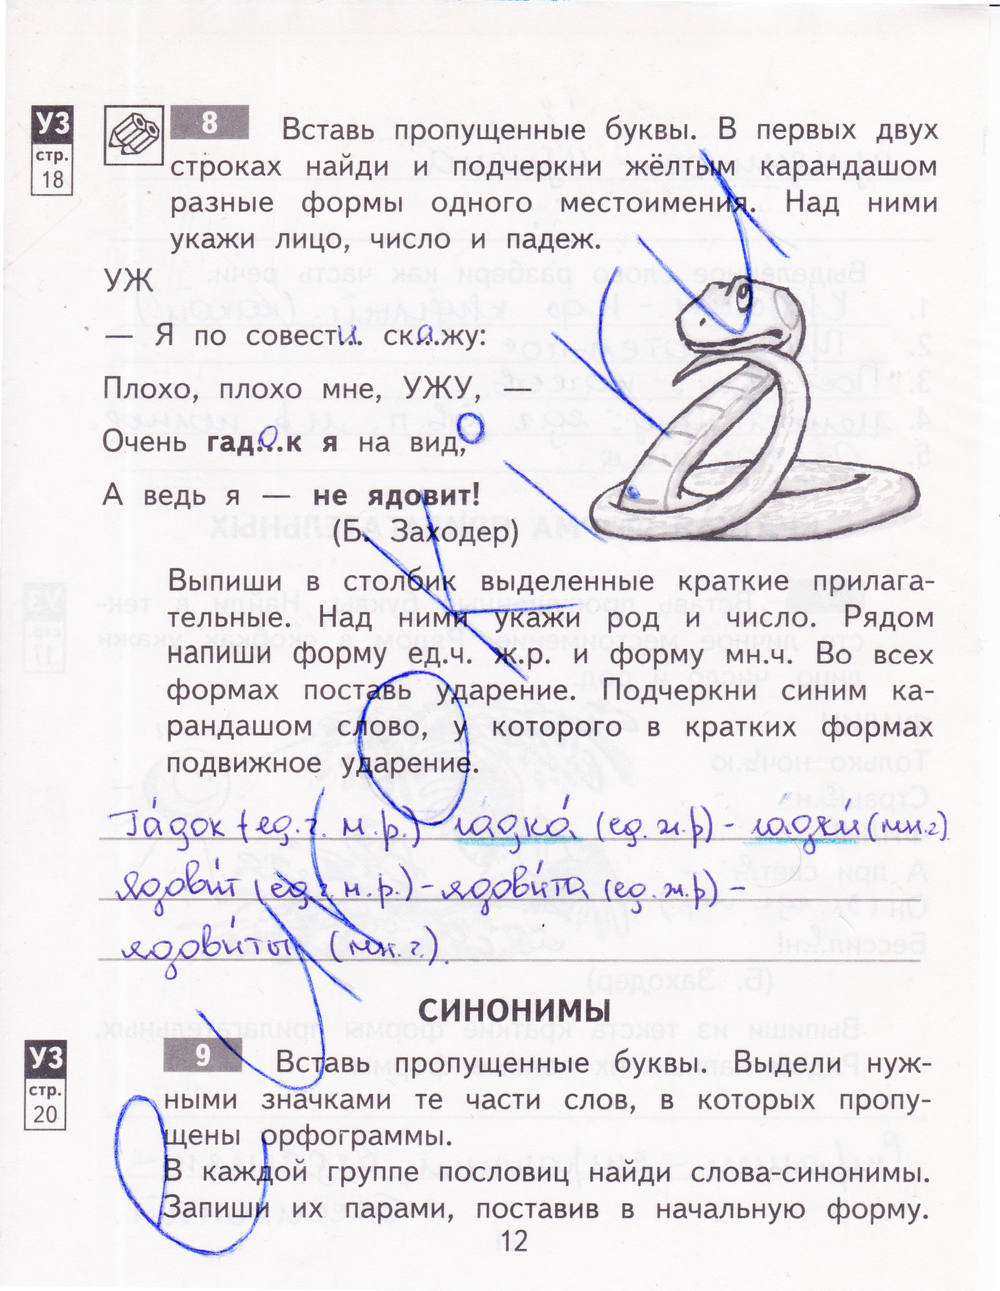 УЗ
стр.
18
8 Вставь пропущенные буквы. В первых двух
строках найди и подчеркни жёлтым карандашом
разные формы одного местоимения. Над ними
укажи лицо, число и падеж.
УЖ
— Я по совести скажу:
Плохо, плохо мне, УЖУ, —
Очень гадок я на вид,
А ведь я — не ядовит!
(Б. Заходер)
Выпиши в столбик выделенные краткие прилага-
тельные. Над ними укажи род и число. Рядом
напиши форму ед.ч. ж.р. и форму мн.ч. Во всех
формах поставь ударение. Подчеркни синим ка-
рандашом слово, у которого в кратких формах
подвижное ударение.
Га́док (ед.ч. м.р.) гадка́ (ед. ж.р) - гадки́ (мн.ч)
ядови́т (ед.ч м.р.) - ядови́та (ед. ж.р) -
ядови́ты (мн.ч.).
СИНОНИМЫ
УЗ
стр.
20
9 Вставь пропущенные буквы. Выдели нуж-
ными значками те части слов, в которых пропу-
щены орфограммы.
В каждой группе пословиц найди слова-синонимы.
Запиши их парами, поставив в начальную форму.
12